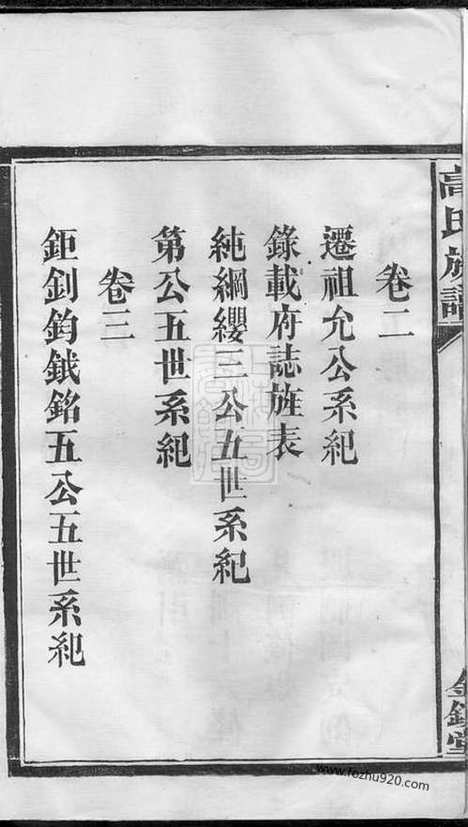 高氏族譜
卷二
遷祖允公系紀
錄載府誌旌表
純綱纓三公五世系紀
第公五世系紀
卷三
鉅釗鈞鉞銘五公五世系紀
www.fozhu920.com